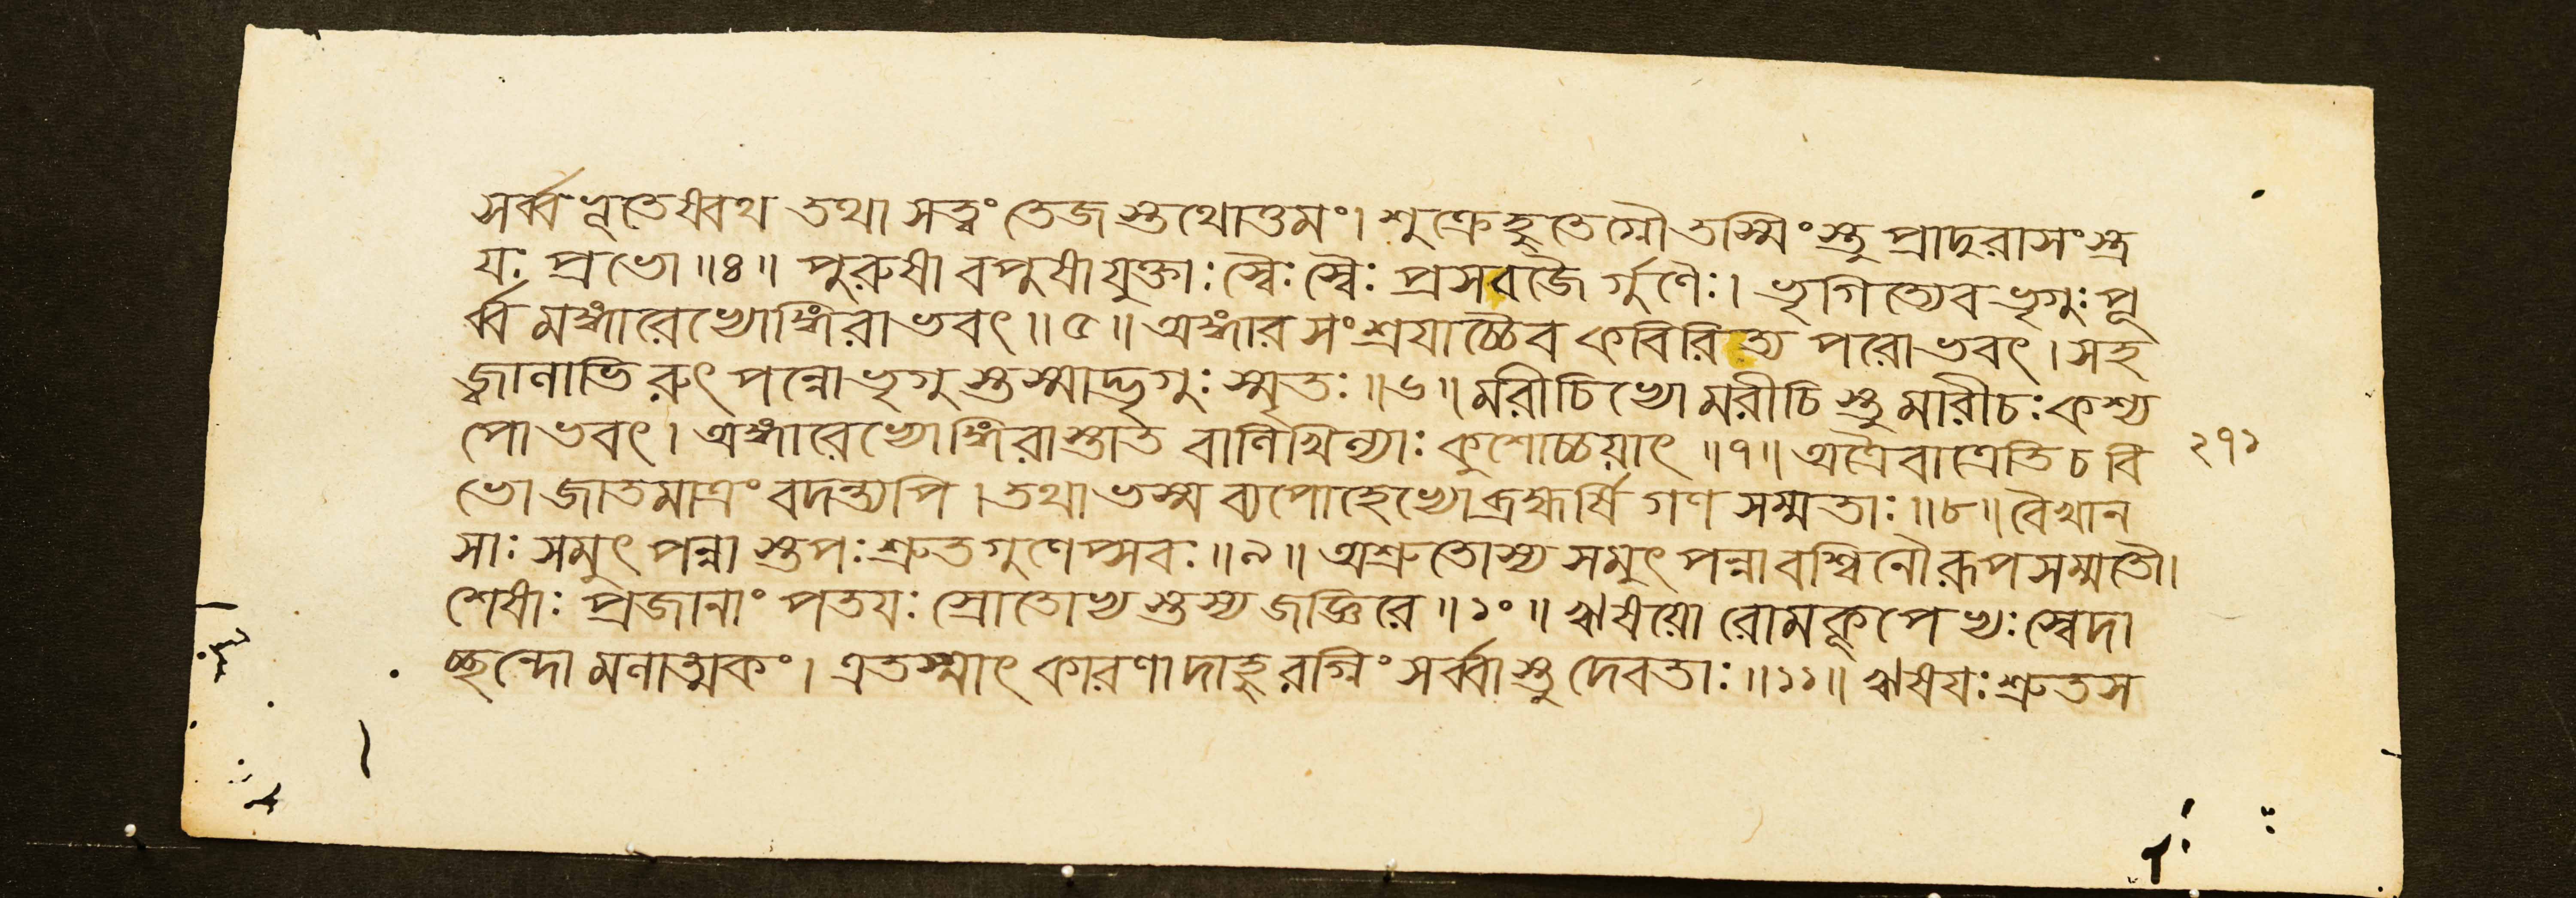 সর্ব্বভূতেষ্বথ তথা সত্ত্বং তেজস্তথোত্তমং। শুক্রেহুতেগ্নৌ তস্মিংস্তু প্রাদুরাসংস্ত্র
যঃ প্রভো ॥৪॥ পুরুষা বপুষা যুক্তাঃ স্বৈঃ স্বৈঃ প্রসবজৈর্গুণৈঃ। ভৃগিত্যেব ভৃগুঃ পূ
র্ব্বমঙ্গারেভ্যোঙ্গিরাভবৎ ॥৫॥ অঙ্গারসংশ্রয়াচ্চৈব কবিরিত্যপরোভবৎ। সহ
জ্বালাভিরুৎপন্নো ভৃগুস্তস্মাদ্ভৃগুঃ স্মৃতঃ ॥৬॥ মরীচিভ্যো মরীচিস্তু মারীচঃ কশ্য
পোভবৎ। অঙ্গারেভ্যোঙ্গিরাস্তাত বালিখিল্যাঃ কুশোচ্চয়াৎ ॥৭॥ অত্রৈবাত্রেতি চ বি
ভো জাতমাত্রং বদন্ত্যপি। তথা ভস্মব্যপোহেভ্যো ব্রহ্মর্ষিগণসম্মতাঃ ॥৮॥ বৈখান
সাঃ সমুৎপন্না স্তপঃশ্রুতগুণেপ্সবঃ ॥৯॥ অশ্রুতোস্য সমুৎপন্নাবশ্বিনৌ রূপসম্মতৌ।
শেষাঃ প্রজানাং পতযঃ স্রোতোভ্যস্তস্য জজ্ঞিরে ॥১০॥ ঋষয়ো রোমকূপেভ্যঃ স্বেদা
চ্ছন্দো মলাত্মকং। এতস্মাৎ কারণাদাহুরগ্নিং সর্ব্বাস্তু দেবতাঃ ॥১১॥ ঋষযঃ শ্রুতস
২৭১